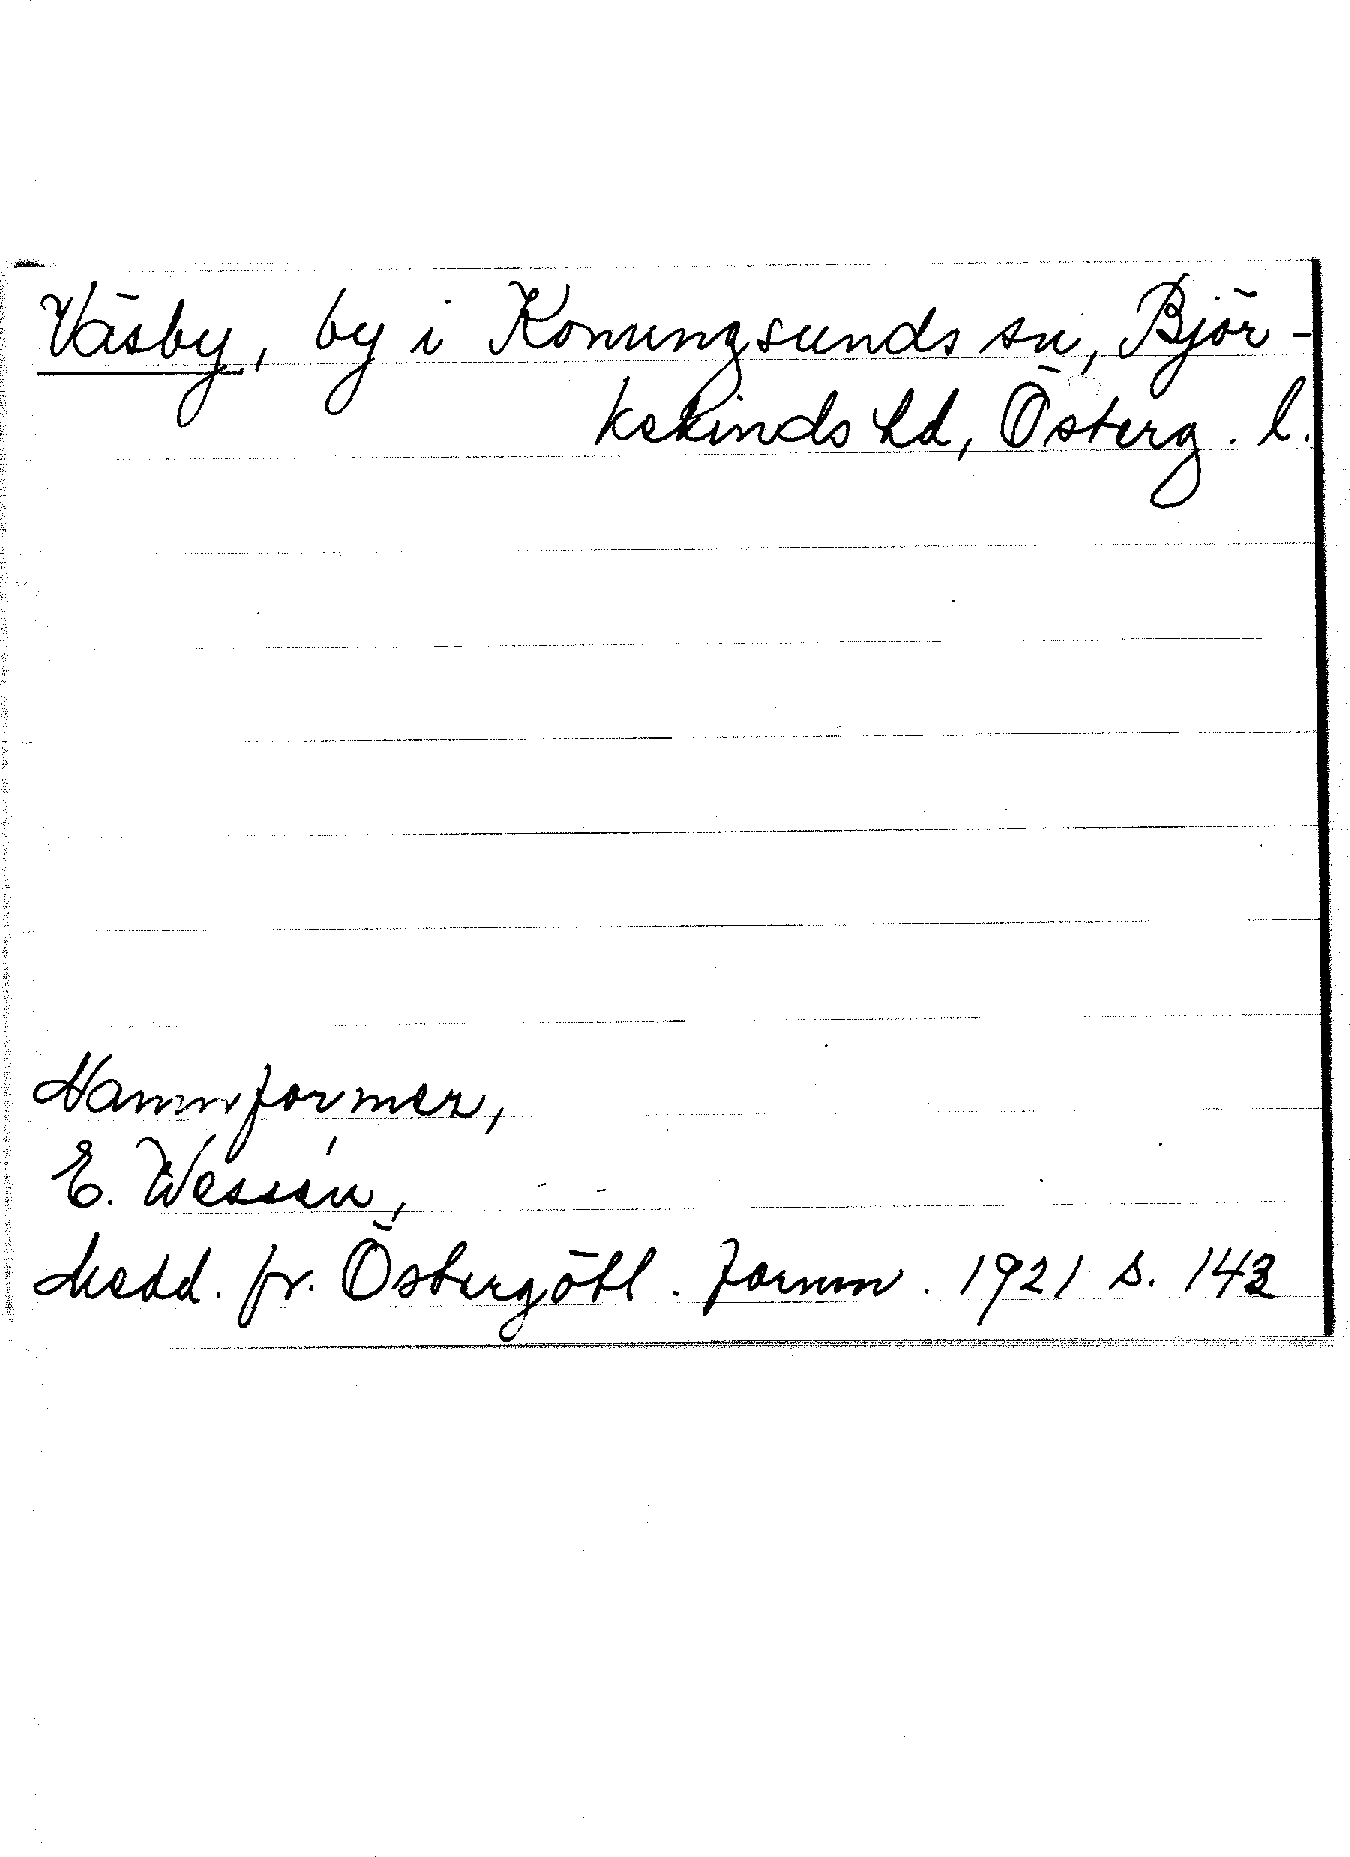 Väsby, by i Konungsunds sn, Björ-
kekinds hd, Österg. l.
Namnformer,
E. Wessén,
Medd. fr. Östergötl. Fornm. 1921 s. 143